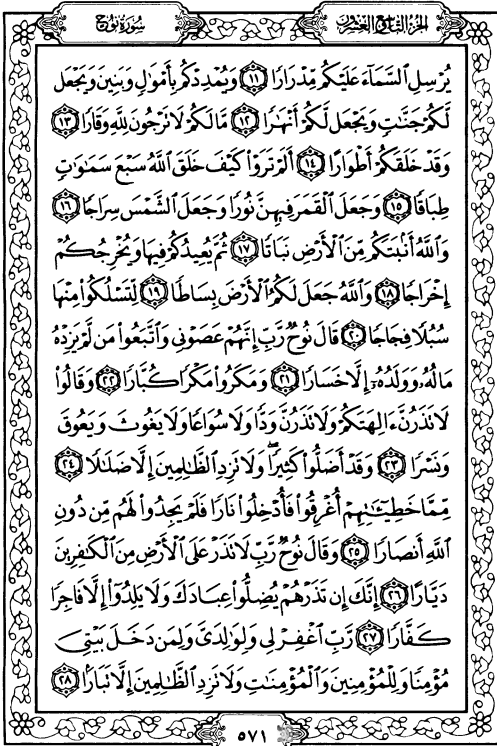 سُورَةُ نُوحٍ
الجُزءُ التَّاسِعُ وَالعِشرُونَ
يُرْسِلِ ٱلسَّمَآءَ عَلَيْكُم مِّدْرَارًا ١١ وَيُمْدِدْكُم بِأَمْوَٰلٍ وَبَنِينَ وَيَجْعَل
لَّكُمْ جَنَّٰتٍ وَيَجْعَل لَّكُمْ أَنْهَٰرًا ١٢ مَّا لَكُمْ لَا تَرْجُونَ لِلَّهِ وَقَارًا ١٣
وَقَدْ خَلَقَكُمْ أَطْوَارًا ١٤ أَلَمْ تَرَوْا۟ كَيْفَ خَلَقَ ٱللَّهُ سَبْعَ سَمَٰوَٰتٍ
طِبَاقًا ١٥ وَجَعَلَ ٱلْقَمَرَ فِيهِنَّ نُورًا وَجَعَلَ ٱلشَّمْسَ سِرَاجًا ١٦
وَٱللَّهُ أَنۢبَتَكُم مِّنَ ٱلْأَرْضِ نَبَاتًا ١٧ ثُمَّ يُعِيدُكُمْ فِيهَا وَيُخْرِجُكُمْ
إِخْرَاجًا ١٨ وَٱللَّهُ جَعَلَ لَكُمُ ٱلْأَرْضَ بِسَاطًا ١٩ لِّتَسْلُكُوا۟ مِنْهَا
سُبُلًا فِجَاجًا ٢٠ قَالَ نُوحٌ رَّبِّ إِنَّهُمْ عَصَوْنِى وَٱتَّبَعُوا۟ مَن لَّمْ يَزِدْهُ
مَالُهُۥ وَوَلَدُهُۥٓ إِلَّا خَسَارًا ٢١ وَمَكَرُوا۟ مَكْرًا كُبَّارًا ٢٢ وَقَالُوا۟
لَا تَذَرُنَّ ءَالِهَتَكُمْ وَلَا تَذَرُنَّ وَدًّا وَلَا سُوَاعًا وَلَا يَغُوثَ وَيَعُوقَ
وَنَسْرًا ٢٣ وَقَدْ أَضَلُّوا۟ كَثِيرًا ۖ وَلَا تَزِدِ ٱلظَّٰلِمِينَ إِلَّا ضَلَٰلًا ٢٤
مِّمَّا خَطِيٓـَٰٔتِهِمْ أُغْرِقُوا۟ فَأُدْخِلُوا۟ نَارًا فَلَمْ يَجِدُوا۟ لَهُم مِّن دُونِ
ٱللَّهِ أَنصَارًا ٢٥ وَقَالَ نُوحٌ رَّبِّ لَا تَذَرْ عَلَى ٱلْأَرْضِ مِنَ ٱلْكَٰفِرِينَ
دَيَّارًا ٢٦ إِنَّكَ إِن تَذَرْهُمْ يُضِلُّوا۟ عِبَادَكَ وَلَا يَلِدُوٓا۟ إِلَّا فَاجِرًا
كَفَّارًا ٢٧ رَّبِّ ٱغْفِرْ لِى وَلِوَٰلِدَىَّ وَلِمَن دَخَلَ بَيْتِىَ
مُؤْمِنًا وَلِلْمُؤْمِنِينَ وَٱلْمُؤْمِنَٰتِ وَلَا تَزِدِ ٱلظَّٰلِمِينَ إِلَّا تَبَارًۢا ٢٨
٥٧١